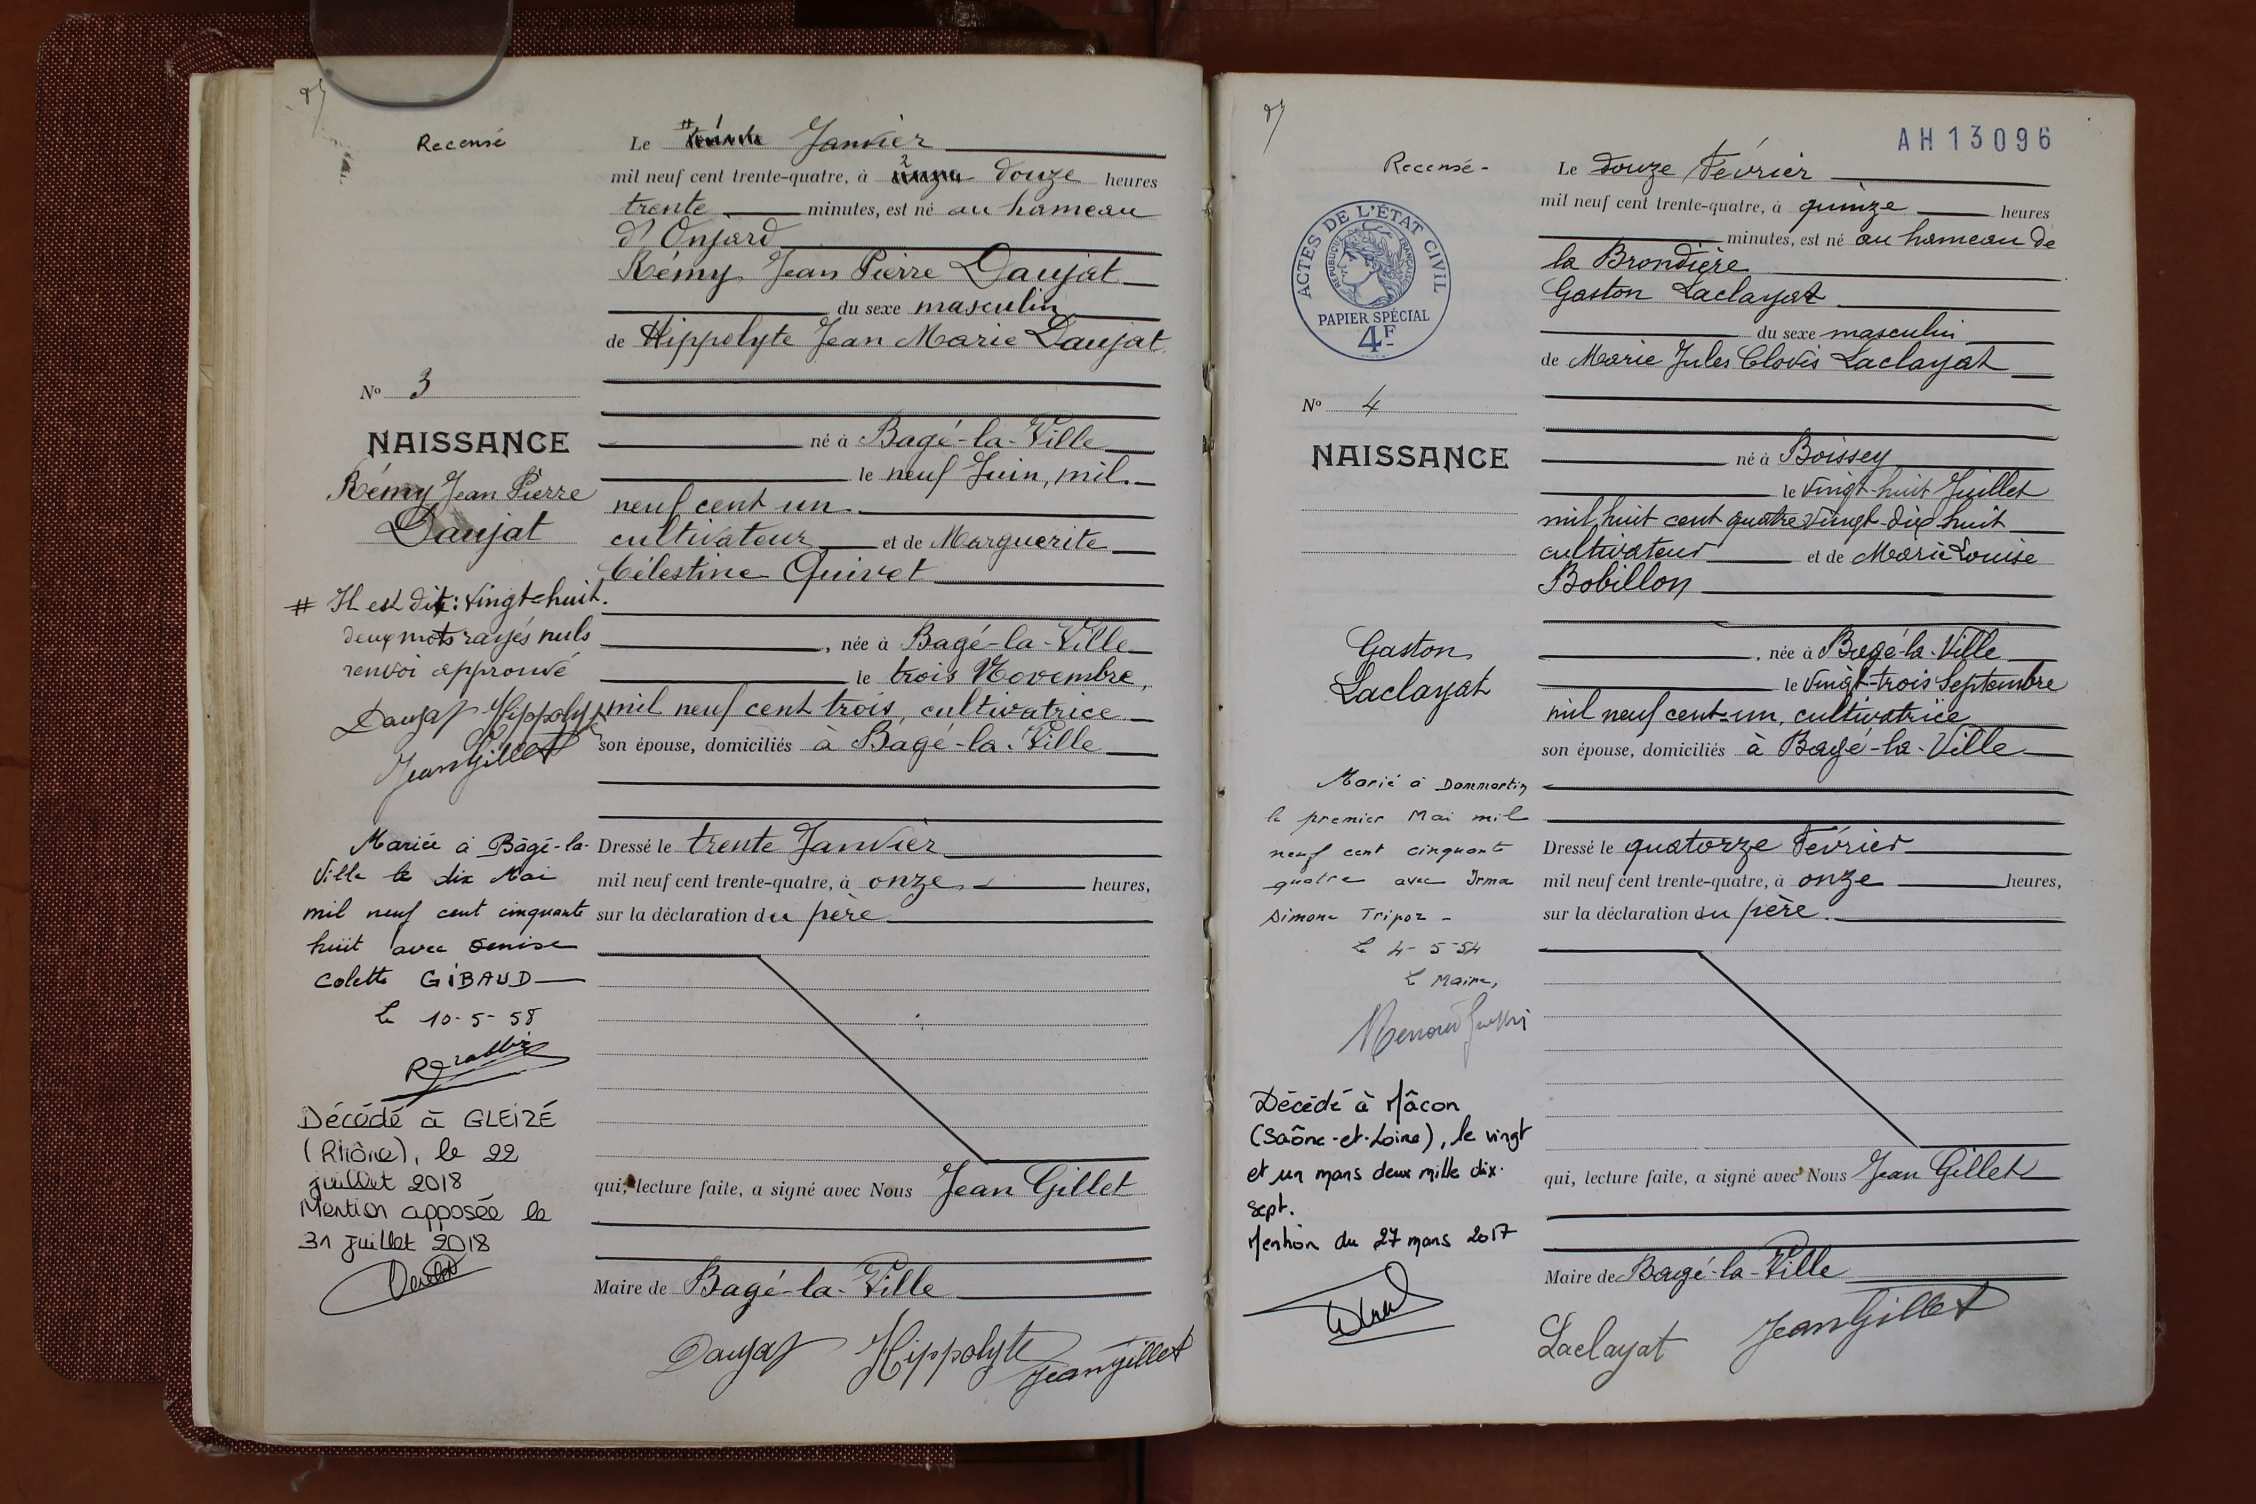 Recensé
Le # 1 Janvier
mil neuf cent trente-quatre, à 2 douze heures
trente minutes, est né au hameau
d'Onjard
Rémy Jean Pierre Daujat
du sexe masculin
de Hippolyte Jean Marie Daujat
No 3
NAISSANCE
Rémy Jean Pierre
Daujat
né à Bagé-la-Ville
le neuf Juin, mil
neuf cent un
cultivateur et de Marguerite
Célestine Quivet
# Il est dit : vingt-huit.
deux mots rayés nuls
renvoi approuvé
Daujat Hippolyte
Jean Gillet
, née à Bagé-la-Ville
le trois Novembre,
mil neuf cent trois, cultivatrice
son épouse, domiciliés à Bagé-la-Ville
Mariée à Bâgé-la-
Ville le dix Mai
mil neuf cent cinquante
huit avec Denise
Colette GIBAUD
le 10-5-58
Dressé le trente Janvier
mil neuf cent trente-quatre, à onze heures,
sur la déclaration du père
Décédé à GLEIZÉ
(Rhône), le 22
juillet 2018
Mention apposée le
31 juillet 2018
qui, lecture faite, a signé avec Nous Jean Gillet
Maire de Bagé-la-Ville
Daujat Hippolyte Jean Gillet
AH13096
Recensé-
ACTES DE L'ÉTAT CIVIL
RÉPUBLIQUE FRANÇAISE
PAPIER SPÉCIAL
4F
Le douze Février
mil neuf cent trente-quatre, à quinze heures
minutes, est né au hameau de
la Brondière
Gaston Laclayat
du sexe masculin
de Marie Jules Clovis Laclayat
No 4
NAISSANCE
Gaston
Laclayat
né à Boissey
le vingt-huit Juillet
mil huit cent quatre vingt-dix huit
cultivateur et de Marie Louise
Bobillon
, née à Bagé-la-Ville
le vingt-trois Septembre
mil neuf cent-un, cultivatrice
son épouse, domiciliés à Bagé-la-Ville
Marié à Dommartin
le premier Mai mil
neuf cent cinquante
quatre avec Irma
Simone Tripoz -
le 4-5-54
Le Maire,
Dressé le quatorze Février
mil neuf cent trente-quatre, à onze heures,
sur la déclaration du père.
Décédé à Mâcon
(Saône-et-Loire), le vingt
et un mars deux mille dix-
sept.
Mention du 27 mars 2017
qui, lecture faite, a signé avec Nous Jean Gillet
Maire de Bagé-la-Ville
Laclayat Jean Gillet